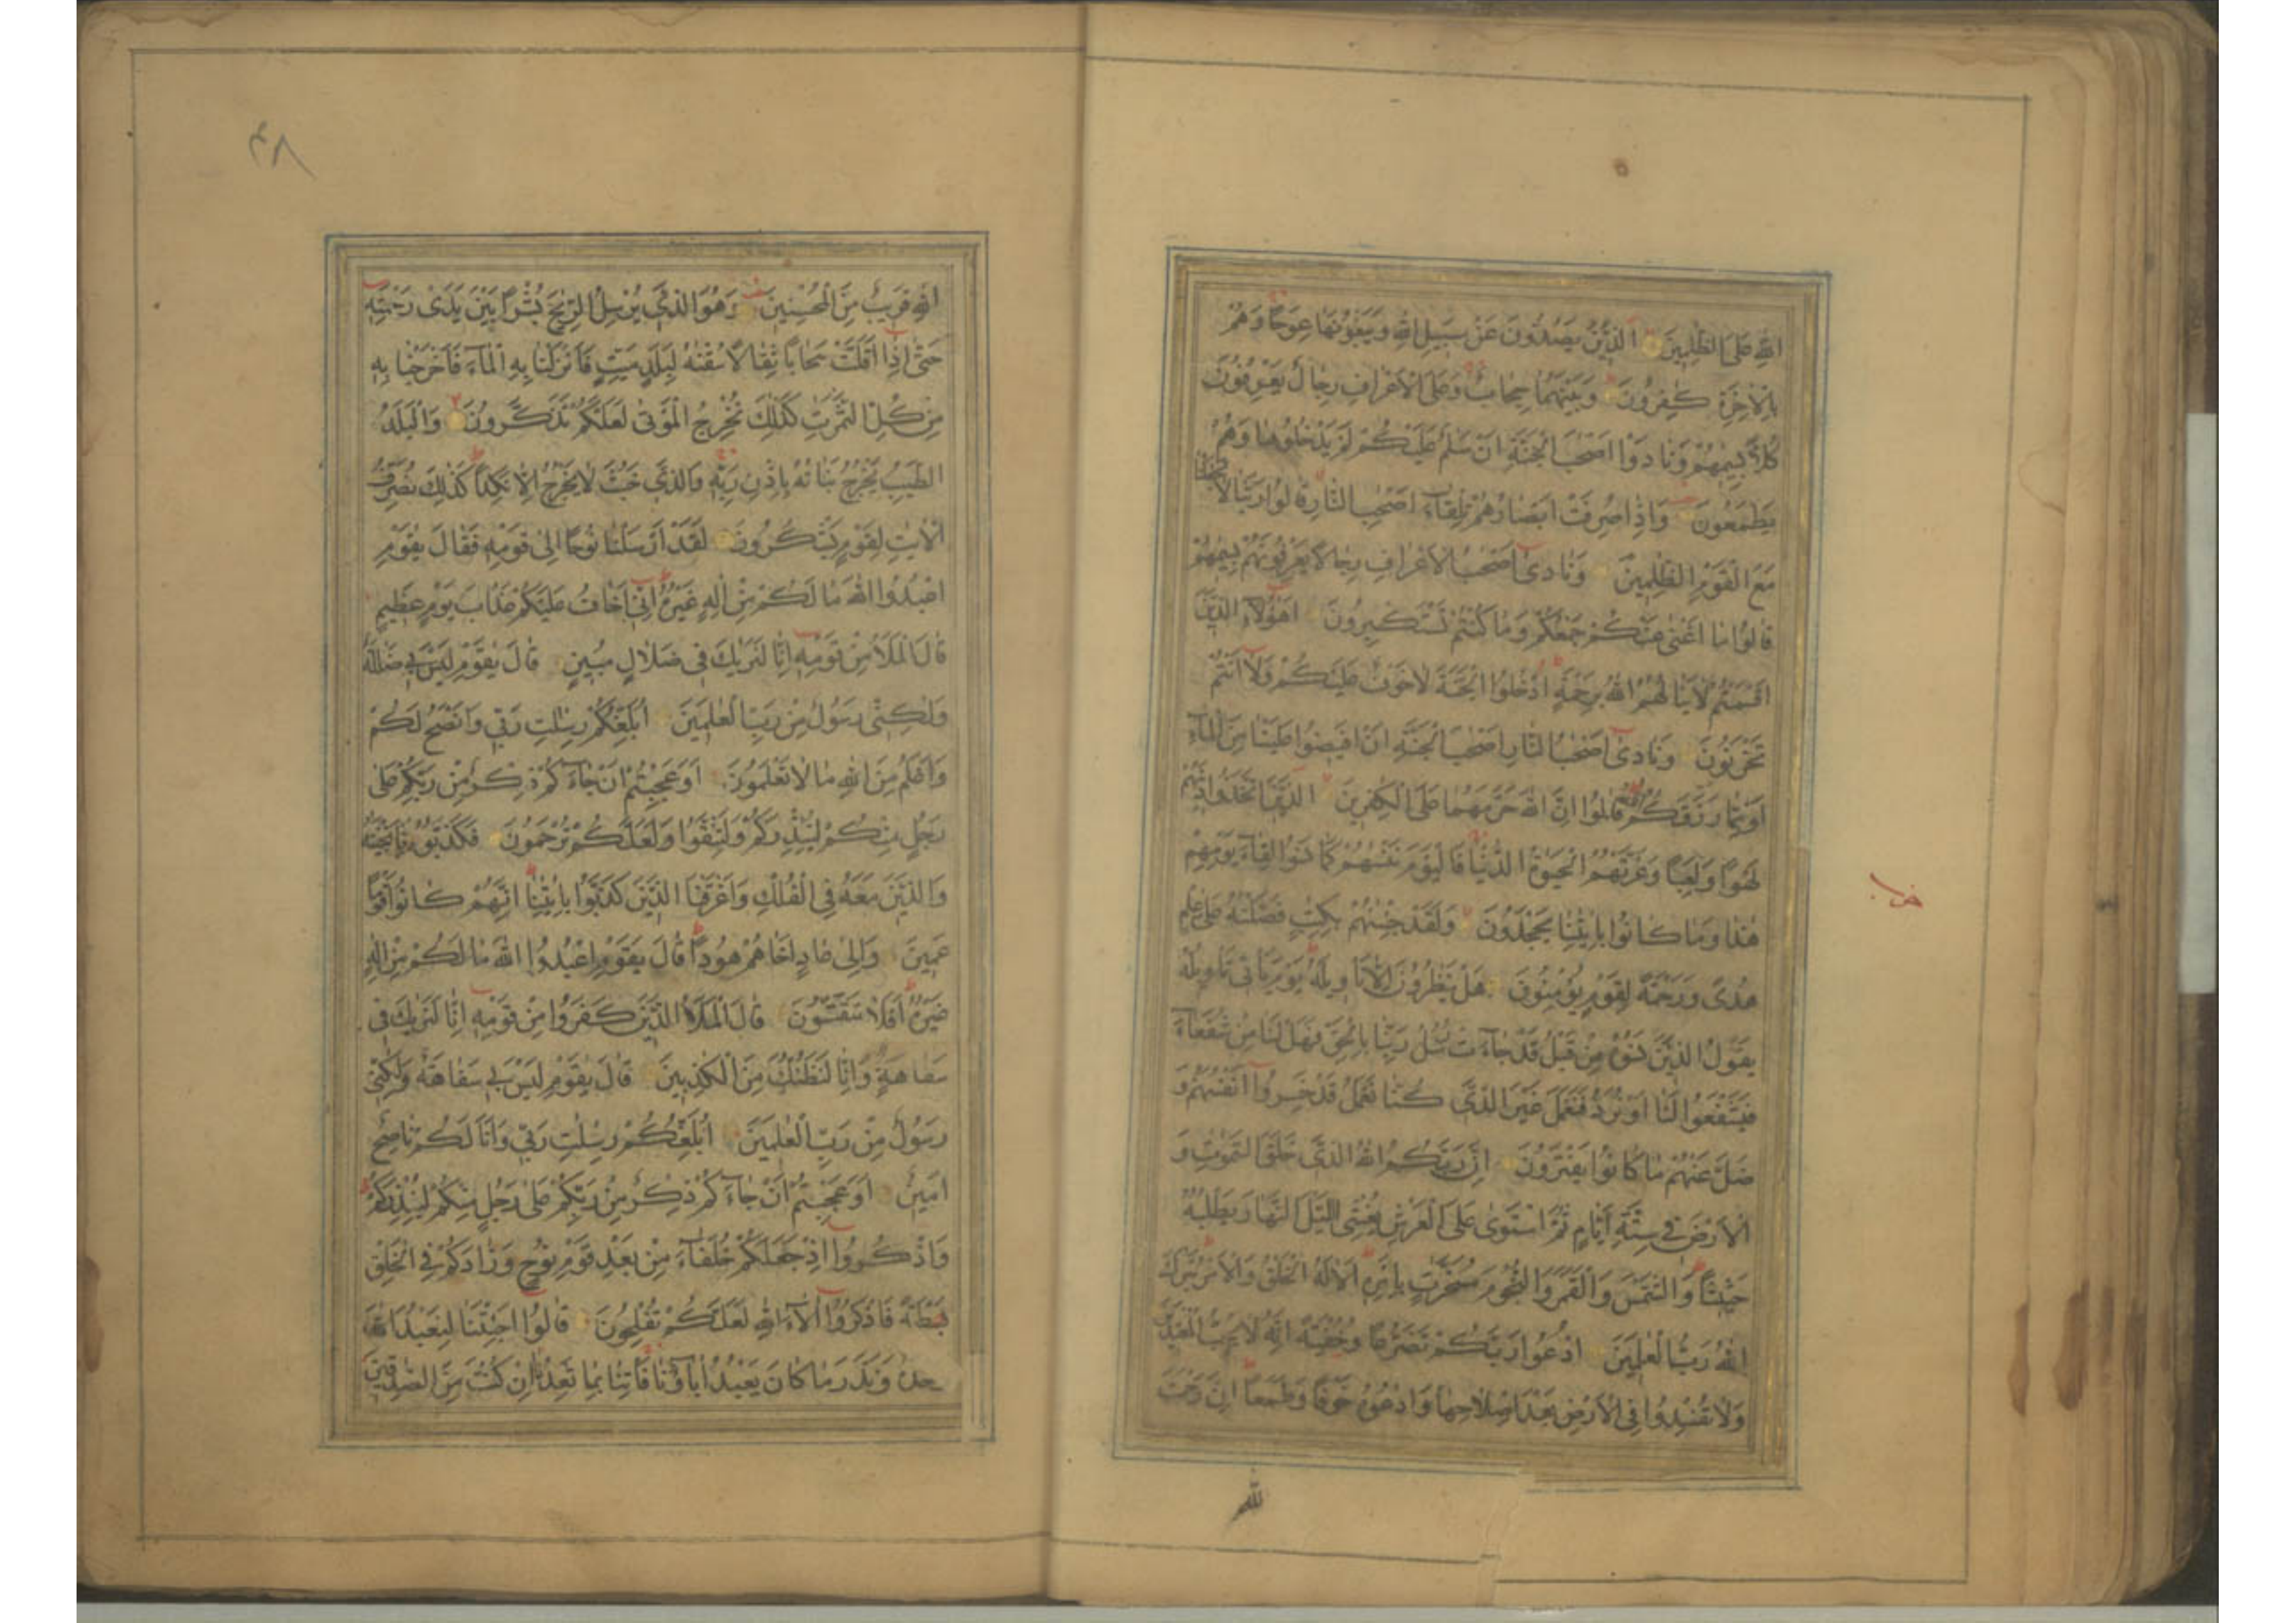 الله على الظلمين الذين يصدون عن سبيل الله ويبغونها عوجا وهم
بالاخرة كفرون وبينهما حجاب وعلى الاعراف رجال يعرفون
كلا بسيمهم ونادوا اصحب الجنة ان سلم عليكم لم يدخلوها وهم
يطمعون واذا صرفت ابصارهم تلقاء اصحب النار قالوا ربنا لا تجعلنا
مع القوم الظلمين ونادى اصحب الاعراف رجالا يعرفونهم بسيمهم
قالوا ما اغنى عنكم جمعكم وما كنتم تستكبرون اهؤلاء الذين
اقسمتم لا ينالهم الله برحمة ادخلوا الجنة لا خوف عليكم ولا انتم
تحزنون ونادى اصحب النار اصحب الجنة ان افيضوا علينا من الماء
او مما رزقكم الله قالوا ان الله حرمهما على الكفرين الذين اتخذوا دينهم
لهوا ولعبا وغرتهم الحيوة الدنيا فاليوم ننسهم كما نسوا لقاء يومهم
هذا وما كانوا بايتنا يجحدون ولقد جئنهم بكتب فصلنه على علم
هدى ورحمة لقوم يؤمنون هل ينظرون الا تاويله يوم ياتى تاويله
يقول الذين نسوه من قبل قد جاءت رسل ربنا بالحق فهل لنا من شفعاء
فيشفعوا لنا او نرد فنعمل غير الذى كنا نعمل قد خسروا انفسهم و
ضل عنهم ما كانوا يفترون ان ربكم الله الذى خلق السموت و
الارض فى ستة ايام ثم استوى على العرش يغشى الليل النهار يطلبه
حثيثا والشمس والقمر والنجوم مسخرت بامره الا له الخلق والامر تبرك
الله رب العلمين ادعوا ربكم تضرعا وخفية انه لا يحب المعتدين
ولا تفسدوا فى الارض بعد اصلاحها وادعوه خوفا وطمعا ان رحمت
الله
٤٨
الله قريب من المحسنين وهو الذى يرسل الريح بشرا بين يدى رحمته
حتى اذا اقلت سحابا ثقالا سقنه لبلد ميت فانزلنا به الماء فاخرجنا به
من كل الثمرت كذلك نخرج الموتى لعلكم تذكرون والبلد
الطيب يخرج نباته باذن ربه والذى خبث لا يخرج الا نكدا كذلك نصرف
الايت لقوم يشكرون لقد ارسلنا نوحا الى قومه فقال يقوم
اعبدوا الله ما لكم من اله غيره انى اخاف عليكم عذاب يوم عظيم
قال الملا من قومه انا لنريك فى ضلال مبين قال يقوم ليس بى ضللة
ولكنى رسول من رب العلمين ابلغكم رسلت ربى وانصح لكم
واعلم من الله ما لا تعلمون او عجبتم ان جاءكم ذكر من ربكم على
رجل منكم لينذركم ولتتقوا ولعلكم ترحمون فكذبوه فانجينه
والذين معه فى الفلك واغرقنا الذين كذبوا بايتنا انهم كانوا قوما
عمين والى عاد اخاهم هودا قال يقوم اعبدوا الله ما لكم من اله
غيره افلا تتقون قال الملا الذين كفروا من قومه انا لنريك فى
سفاهة وانا لنظنك من الكذبين قال يقوم ليس بى سفاهة ولكنى
رسول من رب العلمين ابلغكم رسلت ربى وانا لكم ناصح
امين او عجبتم ان جاءكم ذكر من ربكم على رجل منكم لينذركم
واذكروا اذ جعلكم خلفاء من بعد قوم نوح وزادكم فى الخلق
بصطة فاذكروا الاء الله لعلكم تفلحون قالوا اجئتنا لنعبد الله
وحده ونذر ما كان يعبد اباؤنا فاتنا بما تعدنا ان كنت من الصدقين